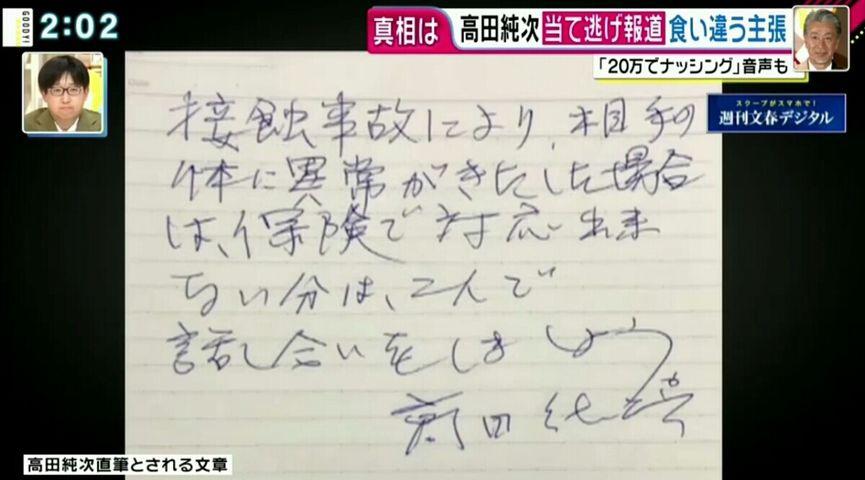 GOODY!
2:02
真相は 高田純次 当て逃げ報道 食い違う主張
「20万でナッシング」音声も
スクープがスマホで!
週刊文春デジタル
接触事故により、相手の
体に異常がきたした場合
は、保険で対応出来
ない分は、二人で
話し合いをしましょう
高田純次
高田純次直筆とされる文章